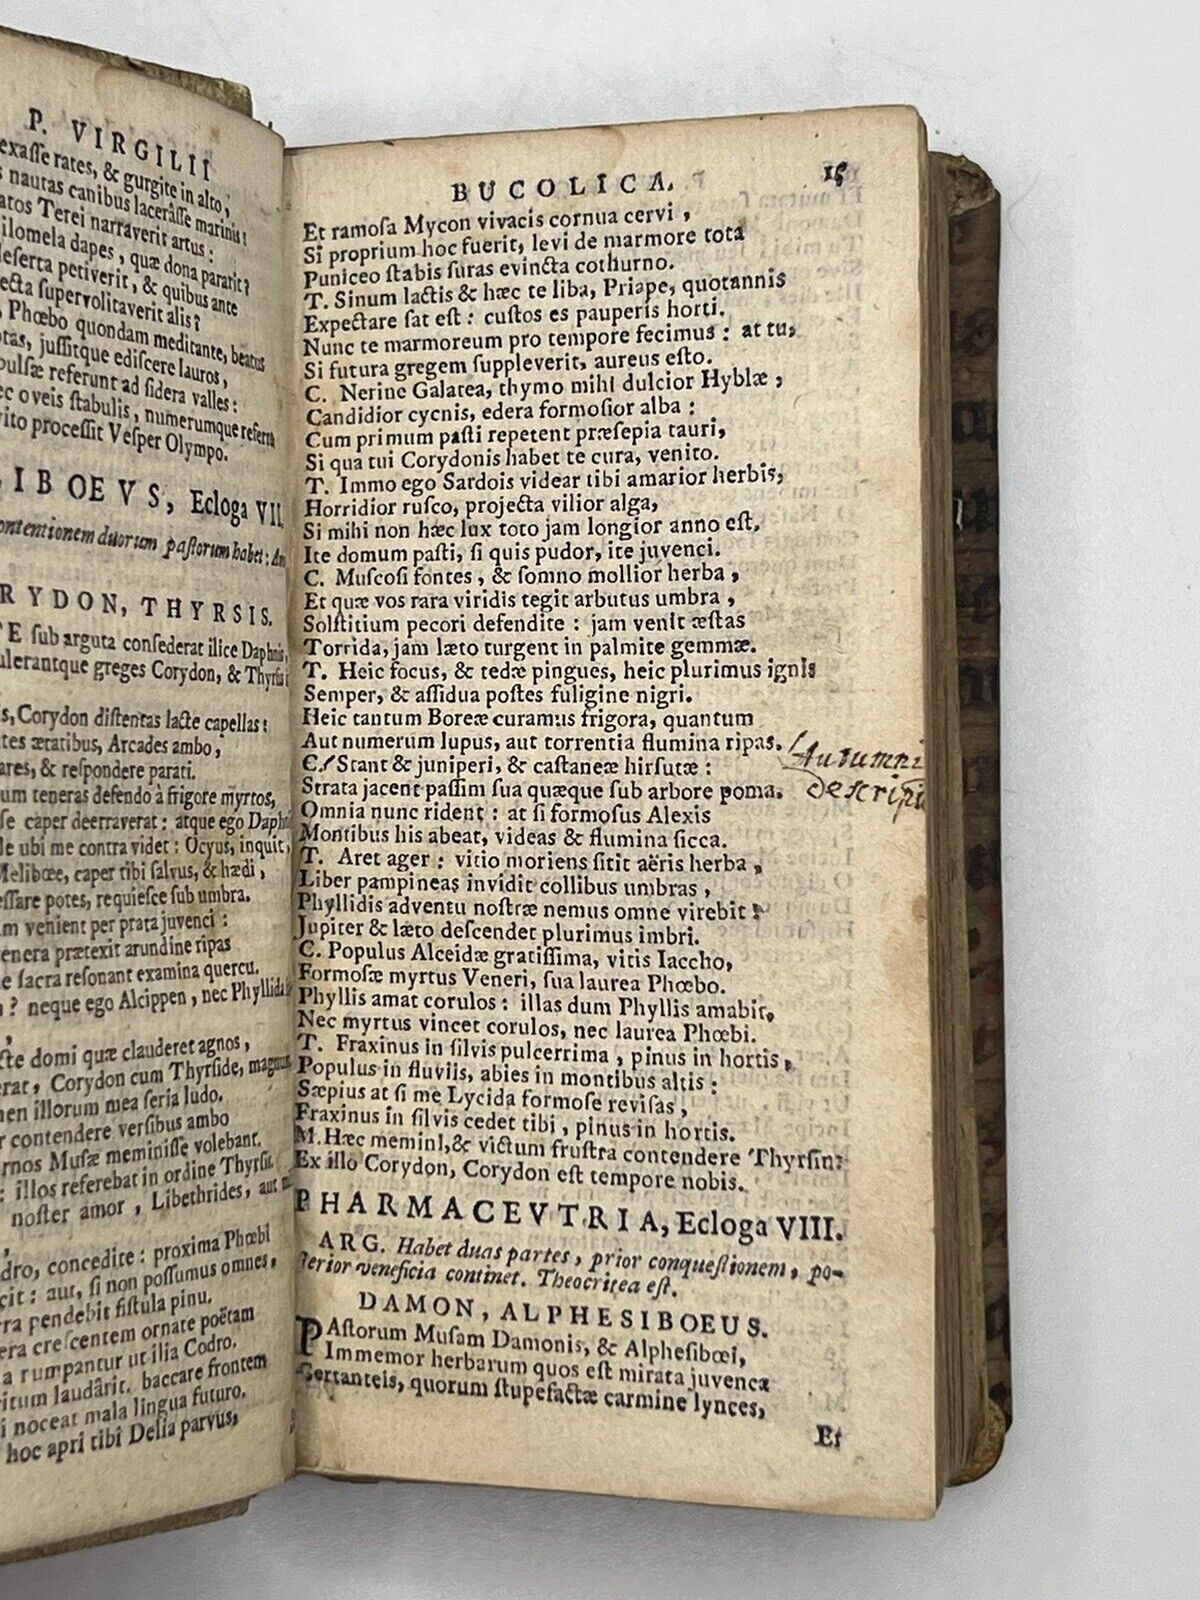 P. VIRGILII
exasse rates, & gurgite in alto,
nautas canibus lacerâsse marinis?
Terei narraverit artus:
dapes, quæ dona pararit?
deserta petiverit, & quibus ante
supervolitaverit alis?
Phœbo quondam meditante, beatus
jussitque ediscere lauros,
referunt ad sidera valles:
oveis stabulis, numerumque referre
processit Vesper Olympo.
IBOEVS, Ecloga VII.
contentionem duorum pastorum habet:
RYDON, THYRSIS.
sub arguta consederat ilice Daphnis,
ulerantque greges Corydon, & Thyrsi
Corydon distentas lacte capellas:
tes ætatibus, Arcades ambo,
ares, & respondere parati.
um teneras defendo à frigore myrtos,
se caper deerraverat: atque ego Daph
le ubi me contra videt: Ocyus, inquit,
Melibœe, caper tibi salvus, & hædi,
essare potes, requiesce sub umbra.
venient per prata juvenci:
enera prætexit arundine ripas
e sacra resonant examina quercu.
? neque ego Alcippen, nec Phyllida
cte domi quæ clauderet agnos,
erat, Corydon cum Thyrside, magnum
men illorum mea seria ludo.
contendere versibus ambo
ernos Musæ meminisse volebant.
illos referebat in ordine Thyrsis.
noster amor, Libethrides, aut
dro, concedite: proxima Phœbi
cit: aut, si non possumus omnes,
ra pendebit fistula pinu.
era crescentem ornate poëtam
a rumpantur ut ilia Codro.
ritum laudârit, baccare frontem
noceat mala lingua futuro.
hoc apri tibi Delia parvus,
BUCOLICA. 15
Et ramosa Mycon vivacis cornua cervi,
Si proprium hoc fuerit, levi de marmore tota
Puniceo stabis suras evincta cothurno.
T. Sinum lactis & hæc te liba, Priape, quotannis
Expectare sat est: custos es pauperis horti.
Nunc te marmoreum pro tempore fecimus: at tu,
Si futura gregem suppleverit, aureus esto.
C. Nerine Galatea, thymo mihi dulcior Hyblæ,
Candidior cycnis, edera formosior alba:
Cum primum pasti repetent præsepia tauri,
Si qua tui Corydonis habet te cura, venito.
T. Immo ego Sardois videar tibi amarior herbis,
Horridior rusco, projecta vilior alga,
Si mihi non hæc lux toto jam longior anno est.
Ite domum pasti, si quis pudor, ite juvenci.
C. Muscosi fontes, & somno mollior herba,
Et quæ vos rara viridis tegit arbutus umbra,
Solstitium pecori defendite: jam venit æstas
Torrida, jam læto turgent in palmite gemmæ.
T. Heic focus, & tedæ pingues, heic plurimus ignis
Semper, & assidua postes fuligine nigri.
Heic tantum Boreæ curamus frigora, quantum
Aut numerum lupus, aut torrentia flumina ripas.
C. Stant & juniperi, & castaneæ hirsutæ:
Autumni
Strata jacent passim sua quæque sub arbore poma.
descripti
Omnia nunc rident: at si formosus Alexis
Montibus his abeat, videas & flumina sicca.
T. Aret ager: vitio moriens sitit aëris herba,
Liber pampineas invidit collibus umbras,
Phyllidis adventu nostræ nemus omne virebit:
Jupiter & læto descendet plurimus imbri.
C. Populus Alcidæ gratissima, vitis Iaccho,
Formosæ myrtus Veneri, sua laurea Phœbo.
Phyllis amat corulos: illas dum Phyllis amabit,
Nec myrtus vincet corulos, nec laurea Phœbi.
T. Fraxinus in silvis pulcerrima, pinus in hortis,
Populus in fluviis, abies in montibus altis:
Sæpius at si me Lycida formose revisas,
Fraxinus in silvis cedet tibi, pinus in hortis.
M. Hæc memini, & victum frustra contendere Thyrsin:
Ex illo Corydon, Corydon est tempore nobis.
PHARMACEVTRIA, Ecloga VIII.
ARG. Habet duas partes, prior conquestionem, po-
sterior veneficia continet. Theocritea est.
DAMON, ALPHESIBOEUS.
PAstorum Musam Damonis, & Alphesibœi,
Immemor herbarum quos est mirata juvenca
Certanteis, quorum stupefactæ carmine lynces,
Et